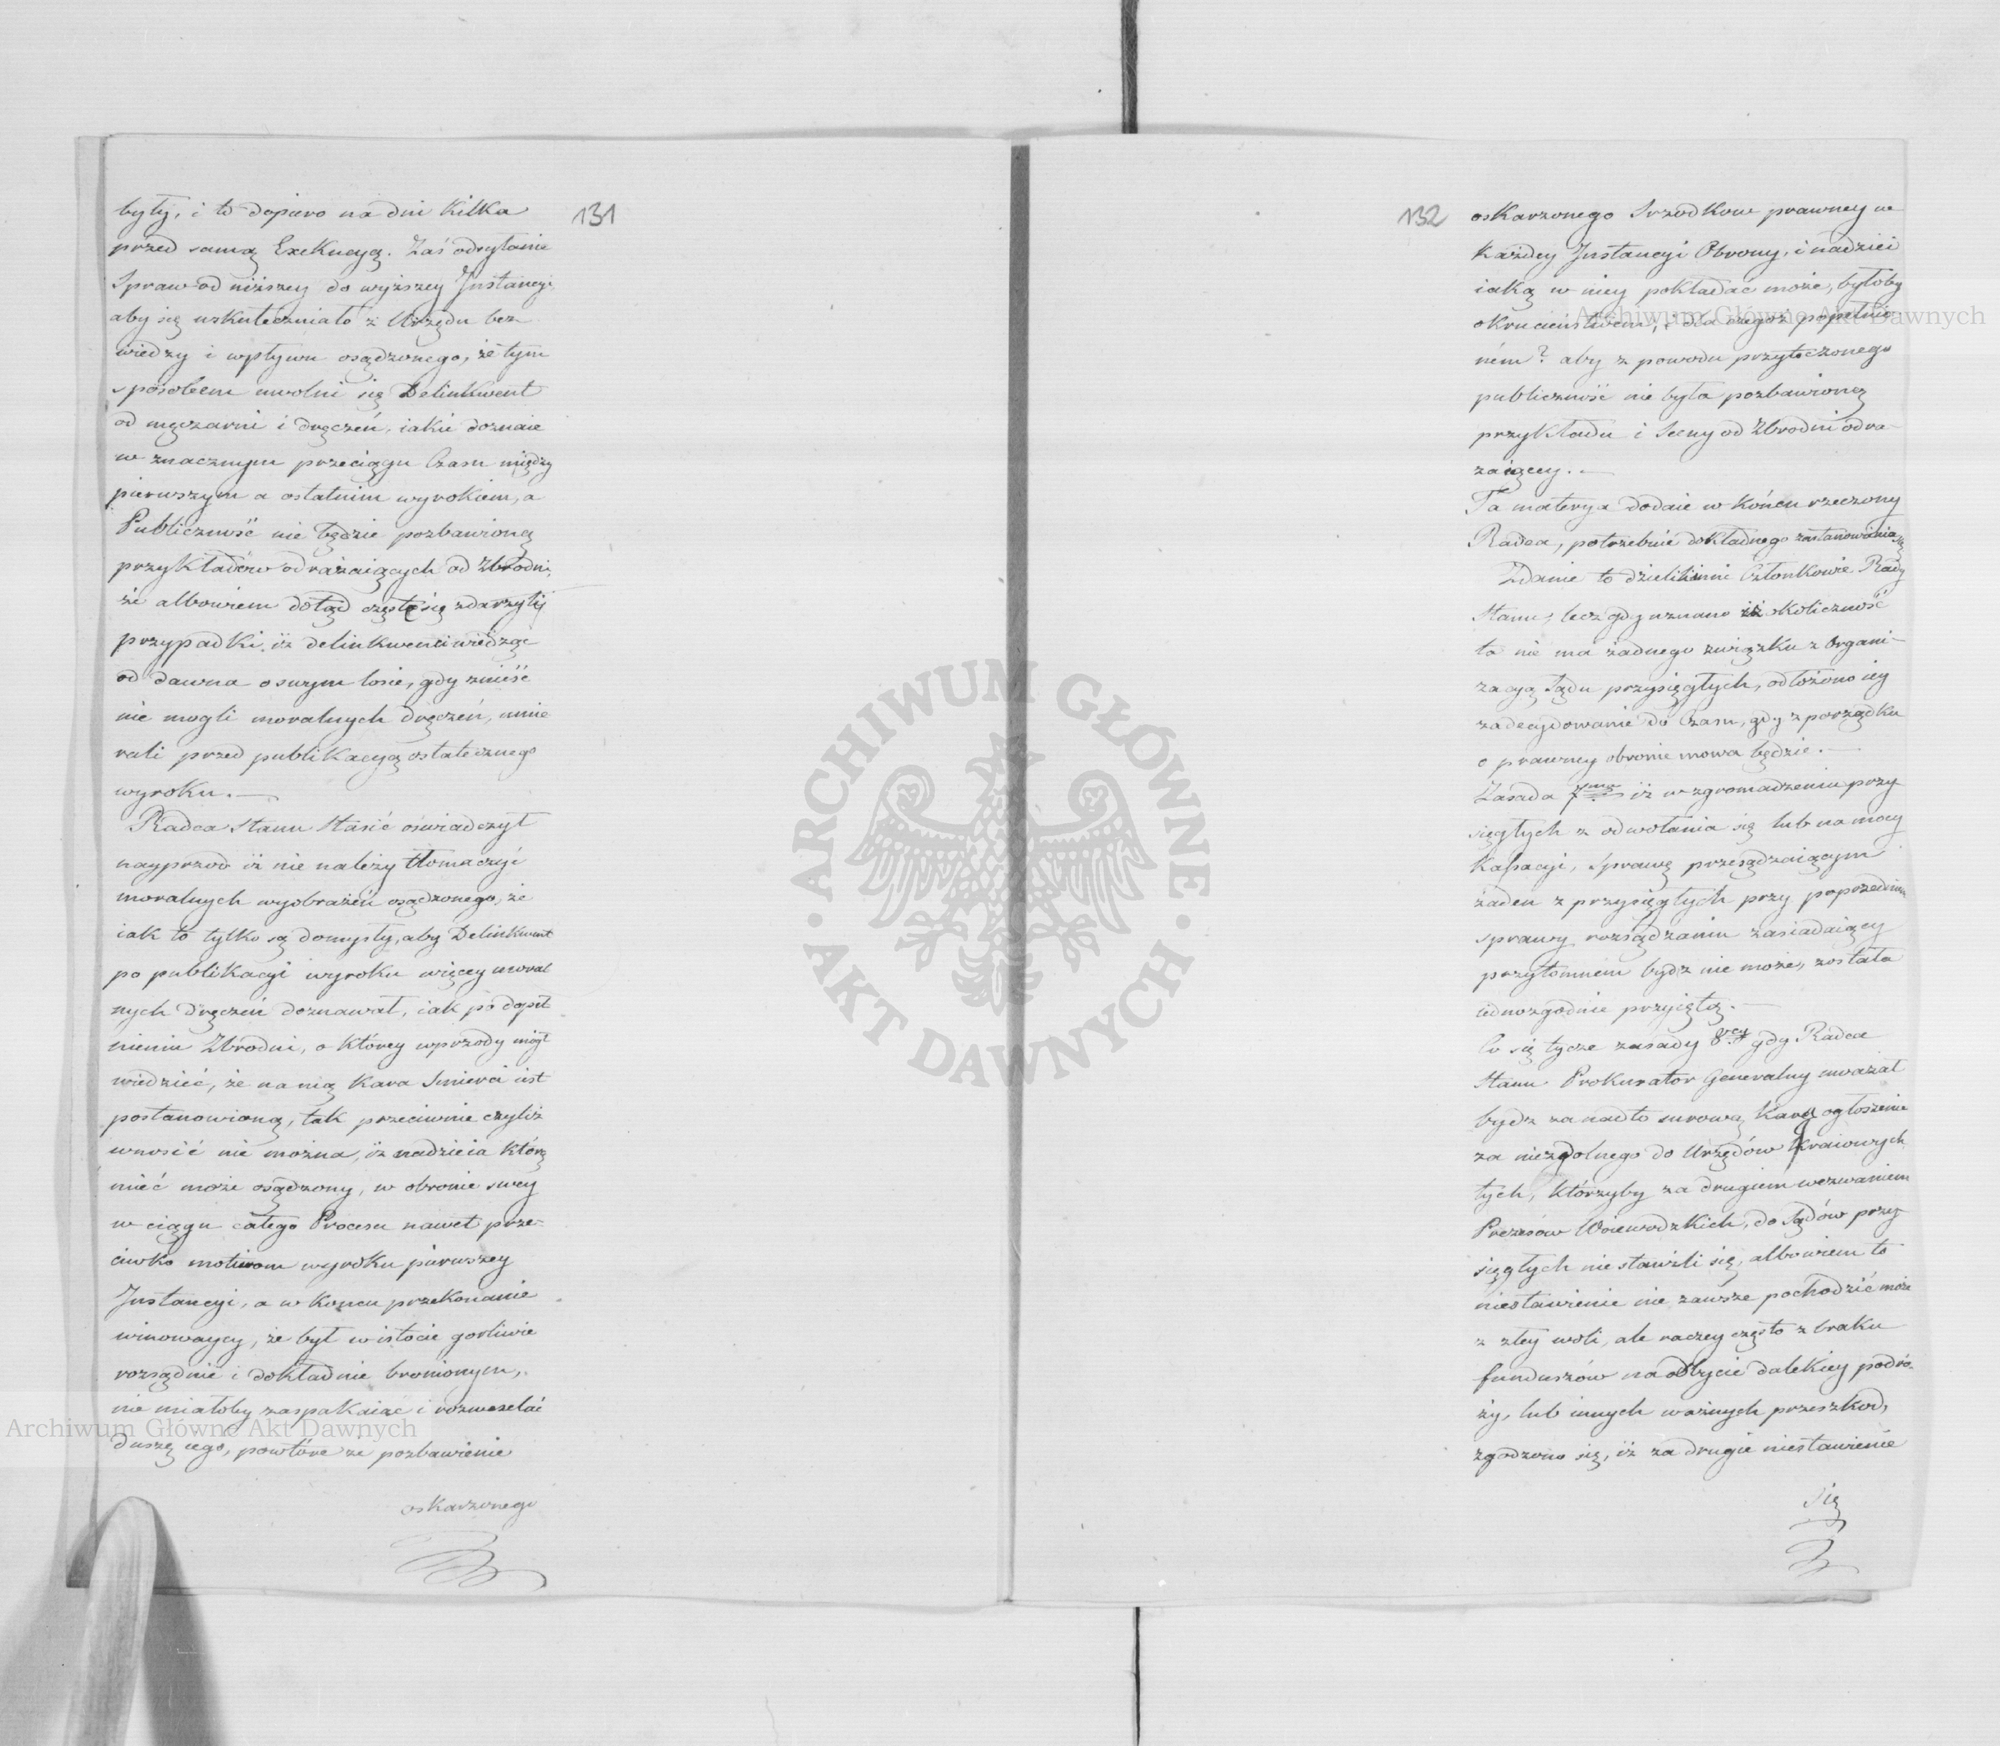 131
były, i to dopiero na dni kilka
przed samą Exekucyą. Zaś odsyłanie
Spraw od niższey do wyższey Instancyi
aby się uskuteczniało z Urzędu bez
wiedzy i wpływu osądzonego, że tym
sposobem uwolni się Delinkwent
od męczarni i dręczeń, iakie doznaie
w znacznym przeciągu Czasu między
pierwszym a ostatnim wyrokiem, a
Publiczność nie będzie pozbawioną
przykładów odrażaiących od Zbrodni,
że albowiem dotąd często się zdarzyły
przypadki, iż delinkwenci wiedząc
od dawna o swym losie, gdy znieść
nie mogli moralnych dręczeń, umie
rali przed publikacyą ostatecznego
wyroku. —
Radca Stanu Stasic oświadczył
nayprzod iż nie należy tłomaczyć
moralnych wyobrażeń osądzonego, że
iak to tylko są domysły, aby Delinkwent
po publikacyi wyroku więcey moral
nych dręczeń doznawał, iak po dopeł
nieniu Zbrodni, o którey wprzody mógł
wiedzieć, że na nią Kara Smierci iest
postanowioną, tak przeciwnie czyliż
wnosić nie można, iż nadzieia którą
mieć może osądzony, w obronie swey
w ciągu całego Procesu nawet prze-
ciwko motiwom wyroku pierwszey
Instancyi, a w końcu przekonanie
winowaycy, że był w istocie gorliwie
rozsądnie i dokładnie bronionym,
nie miałoby zaspakaiać i rozweselać
duszę iego, powtóre że pozbawienie
oskarzonego
132
oskarzonego Srzodkow prawney w
Każdey Instancyi Obrony, i nadziei
iaką w niey pokładać może, byłoby
okrucieństwem, i dla czegoż popełnio
ném? aby z powodu przytoczonego
publiczność nie była pozbawioną
przykładu i Sceny od Zbrodni odra-
żaiącey. —
Ta materya dodaie w końcu rzeczony
Radca, potrzebuie dokładnego zastanowienia się
Zdanie to dzielili inni Członkowie Rady
Stanu, lecz gdy uznano iż okoliczność
ta nie ma żadnego związku z Organi-
zacyą Sądu przysięgłych, odłożono iey
zadecydowanie do Czasu, gdy z porządku
o prawney obronie mowa będzie. —
Zasada 7ma iż w zgromadzeniu przy
sięgłych z odwołania się lub na mocy
Kassacyi, Sprawę przesądzaiącym
żaden z przysięgłych przy poprzedniem
sprawy rozsądzaniu zasiadaiący
przytomnem bydz nie może, została
iednozgodnie przyiętą. —
Co się tycze zasady 8mey gdy Radca
Stanu Prokurator Generalny uważał
bydz za nadto surową Karę ogłoszenie
za niezdolnego do Urzędów Kraiowych
tych, którzyby za drugiem wezwaniem
Prezesów Woiewodzkich, do Sądów przy-
sięgłych nie stawili się, albowiem to
niestawienie nie zawsze pochodzić może
z złey woli, ale raczey często z braku
funduszów na odbycie dalekiey podró-
ży, lub innych ważnych przeszkod,
zgodzono się, iż za drugie niestawienie
się
ARCHIWUM GŁÓWNE AKT DAWNYCH
Archiwum Główne Akt Dawnych
Archiwum Główne Akt Dawnych